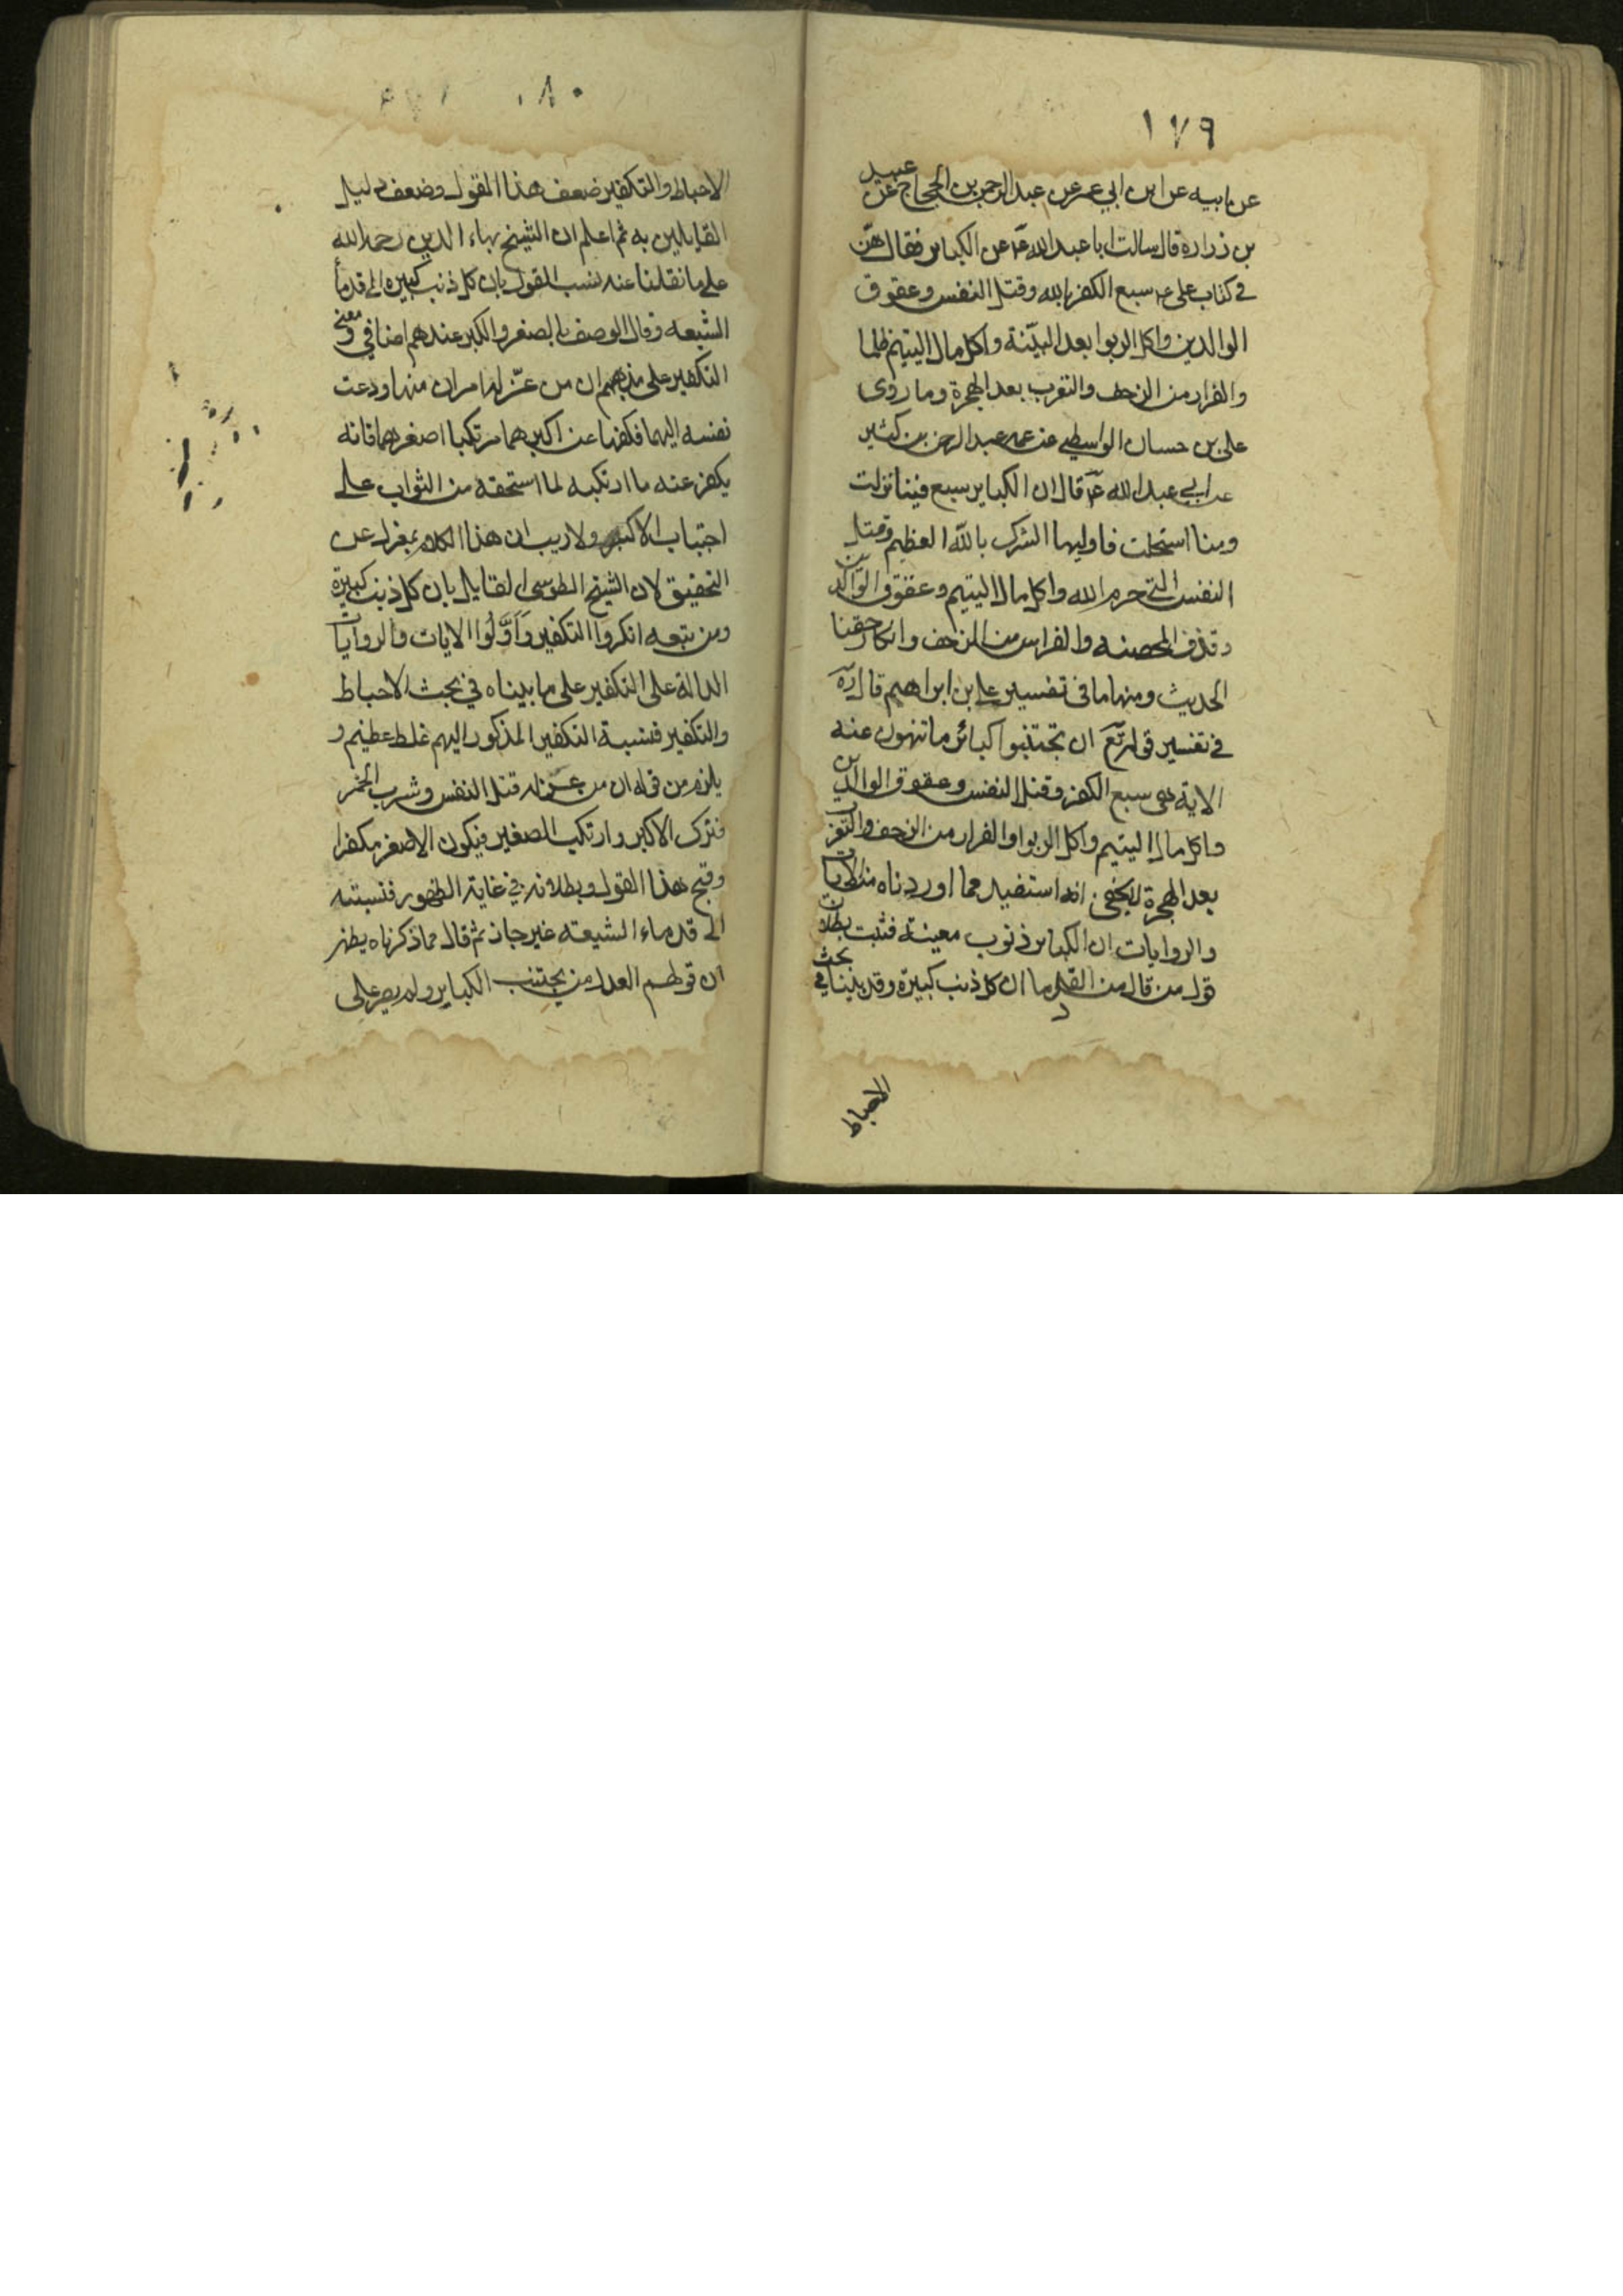 ١٧٩
عن ابيه عن ابن ابي عمير عن عبد الرحمن بن الحجاج عن عبيد
بن زرارة قال سالت ابا عبد الله ع عن الكباير فقال هنّ
في كتاب علي ع سبع الكفر بالله وقتل النفس وعقوق
الوالدين واكل الربوا بعد البيّنة واكل مال اليتيم ظلما
والفرار من الزحف والتعرب بعد الهجرة وما روى
علي بن حسان الواسطي عن عمه عبد الرحمن بن كثير
عن ابي عبد الله ع قال ان الكباير سبع فينا نزلت
ومنا استحلت فاوليها الشرك بالله العظيم وقتل
النفس التي حرم الله واكل مال اليتيم وعقوق الوالدين
وقذف المحصنه والفرار من الزحف وانكار حقنا
الحديث ومنها ما في تفسير علي بن ابراهيم قال ره
في تفسير قوله تع ان تجتنبوا كبائر ما تنهون عنه
الاية هي سبع الكفر وقتل النفس وعقوق الوالدين
واكل مال اليتيم واكل الربوا والفرار من الزحف والتعرب
بعد الهجرة لا يخفى انه استفيد مما اوردناه من الايات
والروايات ان الكباير ذنوب معينة فثبت بطلان
قول من قال من القدما ان كل ذنب كبيرة وقد بينا في بحث
الاحباط
١٨٠
الاحباط والتكفير ضعف هذا القول وضعف دليل
القايلين به ثم اعلم ان الشيخ بهاء الدين رحمه الله
على ما نقلنا عنه نسب القول بان كل ذنب كبيره الى قدما
الشيعه وقال الوصف بالصغر والكبر عندهم اضافي ومعنى
التكفير على مذهبهم ان من عنّ له امران منها ودعت
نفسه اليهما فكفها عن اكبرهما مرتكبا اصغرهما فانه
يكفر عنه ما ارتكبه لما استحقه من الثواب على
اجتناب الاكبر ولا ريب ان هذا الكلام بمعزل عن
التحقيق لان الشيخ الطوسى القايل بان كل ذنب كبيرة
ومن تبعه انكروا التكفير وَاَوَّلُوا الايات والروايات
الدالة على التكفير على ما بيناه في بحث الاحباط
والتكفير فنسبة التكفير المذكور اليهم غلط عظيم و
يلزم من قوله ان من عنّ له قتل النفس وشرب الخمر
فترك الاكبر وارتكب الصغير فيكون الاصغر مكفرا
وقبح هذا القول وبطلانه في غاية الظهور فنسبته
الى قدماء الشيعة غير جائز ثم قال مما ذكرناه يظهر
ان قولهم العدل من يجتنب الكباير ولم يصر على